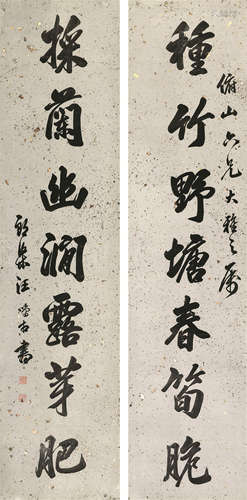 種竹野塘春筍脆
俯山六兄大雅之屬
採蘭幽澗露芽肥